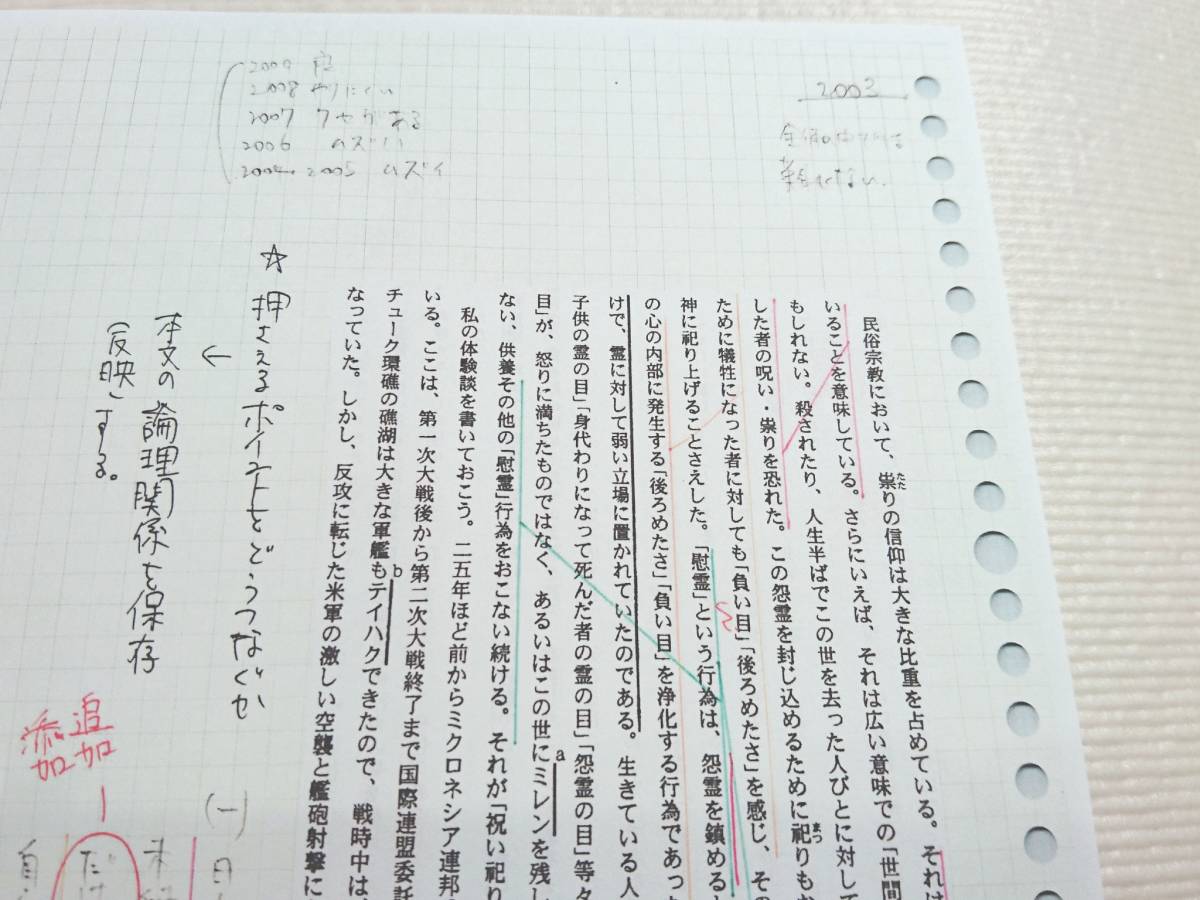 2009
2008 やりにくい
2007 クセがある
2006 ムズい
2004. 2005 ムズイ
2003
民俗宗教において、祟りの信仰は大きな比重を占めている。それは
たた
いることを意味している。さらにいえば、それは広い意味での「世間
もしれない。殺されたり、人生半ばでこの世を去った人びとに対して
した者の呪い・祟りを恐れた。この怨霊を封じ込めるために祀りもお
まつ
ために犠牲になった者に対しても「負い目」「後ろめたさ」を感じ、その
神に祀り上げることさえした。「慰霊」という行為は、怨霊を鎮めると
の心の内部に発生する「後ろめたさ」「負い目」を浄化する行為であった
けで、霊に対して弱い立場に置かれていたのである。生きている人
子供の霊の目」「身代わりになって死んだ者の霊の目」「怨霊の目」等タ
目」が、怒りに満ちたものではなく、あるいはこの世にミレンを残し
a
ない、供養その他の「慰霊」行為をおこない続ける。それが「祝い祀り
私の体験談を書いておこう。二五年ほど前からミクロネシア連邦の
いる。ここは、第一次大戦後から第二次大戦終了まで国際連盟委託
チューク環礁の礁湖は大きな軍艦もテイハクできたので、戦時中は、
b
なっていた。しかし、反攻に転じた米軍の激しい空襲と艦砲射撃に
☆ 押さえるポイントとどうつなぐか
↓
本文の論理関係を保存
(反映)する。
追加
添加
(一)